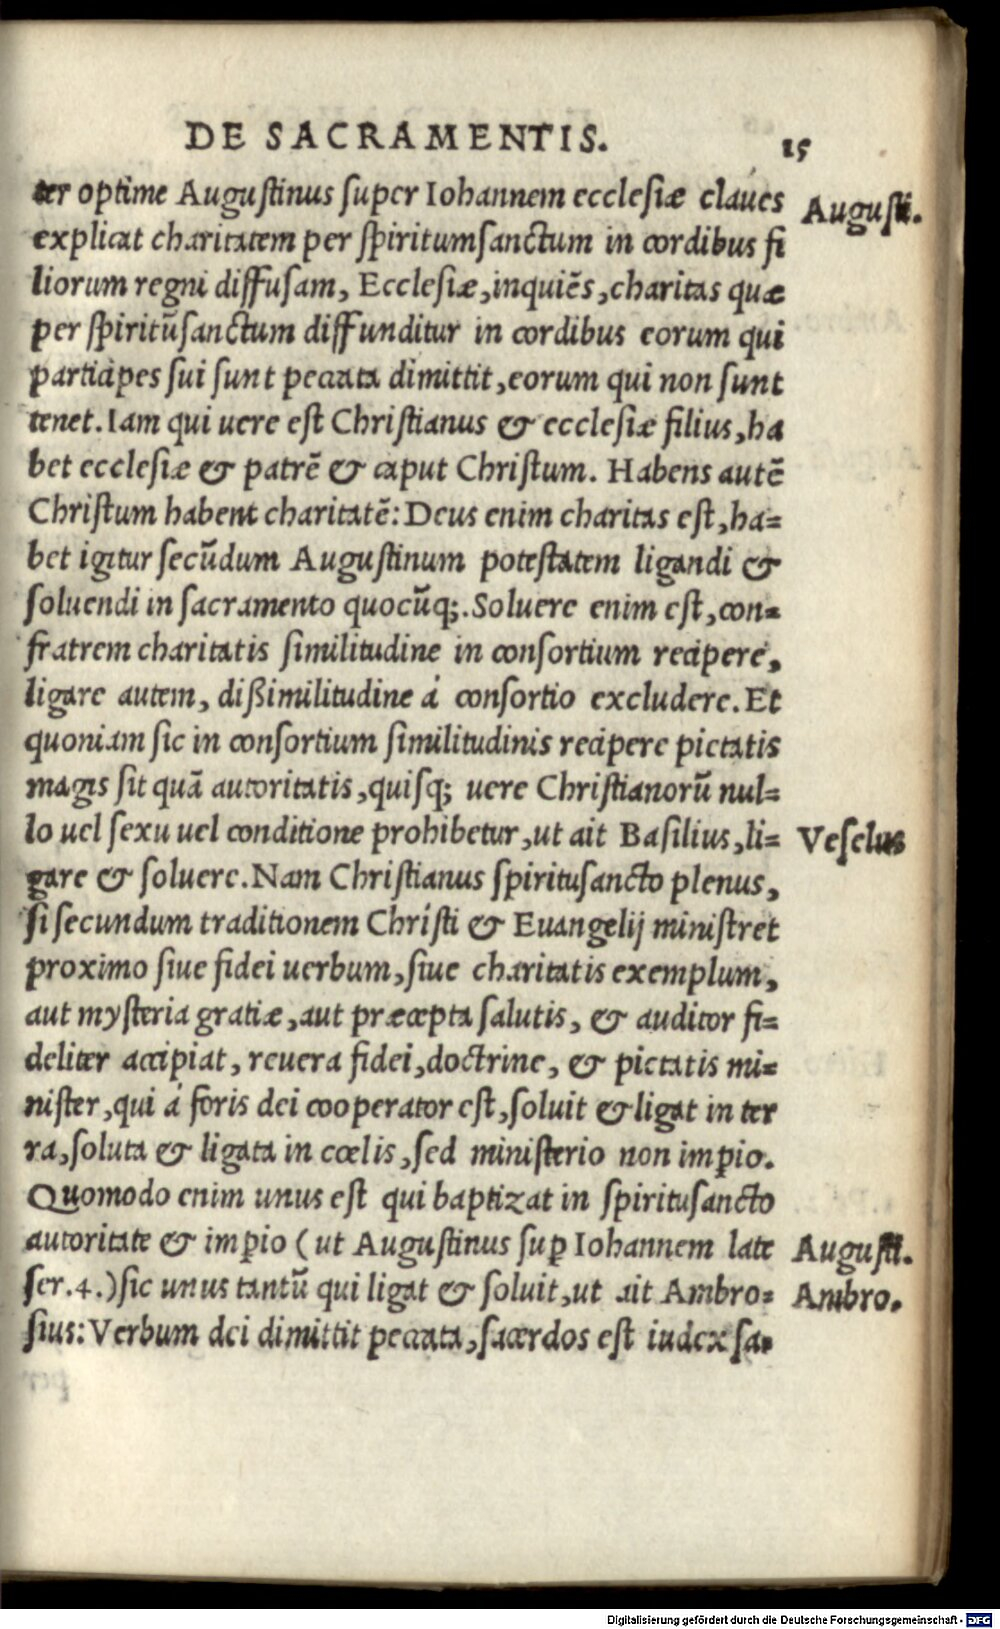 DE SACRAMENTIS. 15
ter optime Auguſtinus ſuper Iohannem eccleſiæ claues Auguſti.
explicat charitatem per ſpiritumſanctum in cordibus fi
liorum regni diffuſam, Eccleſiæ, inquiẽs, charitas quæ
per ſpiritũſanctum diffunditur in cordibus eorum qui
participes ſui ſunt peccata dimittit, eorum qui non ſunt
tenet. Iam qui uere eſt Chriſtianus & eccleſiæ filius, ha
bet eccleſiæ & patrẽ & caput Chriſtum. Habens autẽ
Chriſtum habent charitatẽ: Deus enim charitas eſt, ha=
bet igitur ſecũdum Auguſtinum poteſtatem ligandi &
ſoluendi in ſacramento quocũq;. Soluere enim eſt, con=
fratrem charitatis ſimilitudine in conſortium recipere,
ligare autem, dißimilitudine á conſortio excludere. Et
quoniam ſic in conſortium ſimilitudinis recipere pietatis
magis ſit quã autoritatis, quiſq; uere Chriſtianorũ nul=
lo uel ſexu uel conditione prohibetur, ut ait Baſilius, li= Veſelus
gare & ſoluere. Nam Chriſtianus ſpirituſancto plenus,
ſi ſecundum traditionem Chriſti & Euangelij miniſtret
proximo ſiue fidei uerbum, ſiue charitatis exemplum,
aut myſteria gratiæ, aut præcepta ſalutis, & auditor fi=
deliter accipiat, reuera fidei, doctrine, & pietatis mi=
niſter, qui á foris dei cooperator eſt, ſoluit & ligat in ter
ra, ſoluta & ligata in cœlis, ſed miniſterio non imꝑio.
Quomodo enim unus eſt qui baptizat in ſpirituſancto
autoritate & imꝑio (ut Auguſtinus ſuꝑ Iohannem late Auguſti.
ſer. 4.) ſic unus tantũ qui ligat & ſoluit, ut ait Ambro= Ambro.
ſius: Verbum dei dimittit peccata, ſacerdos eſt iudex ſa=
Digitalisierung gefördert durch die Deutsche Forschungsgemeinschaft - DFG